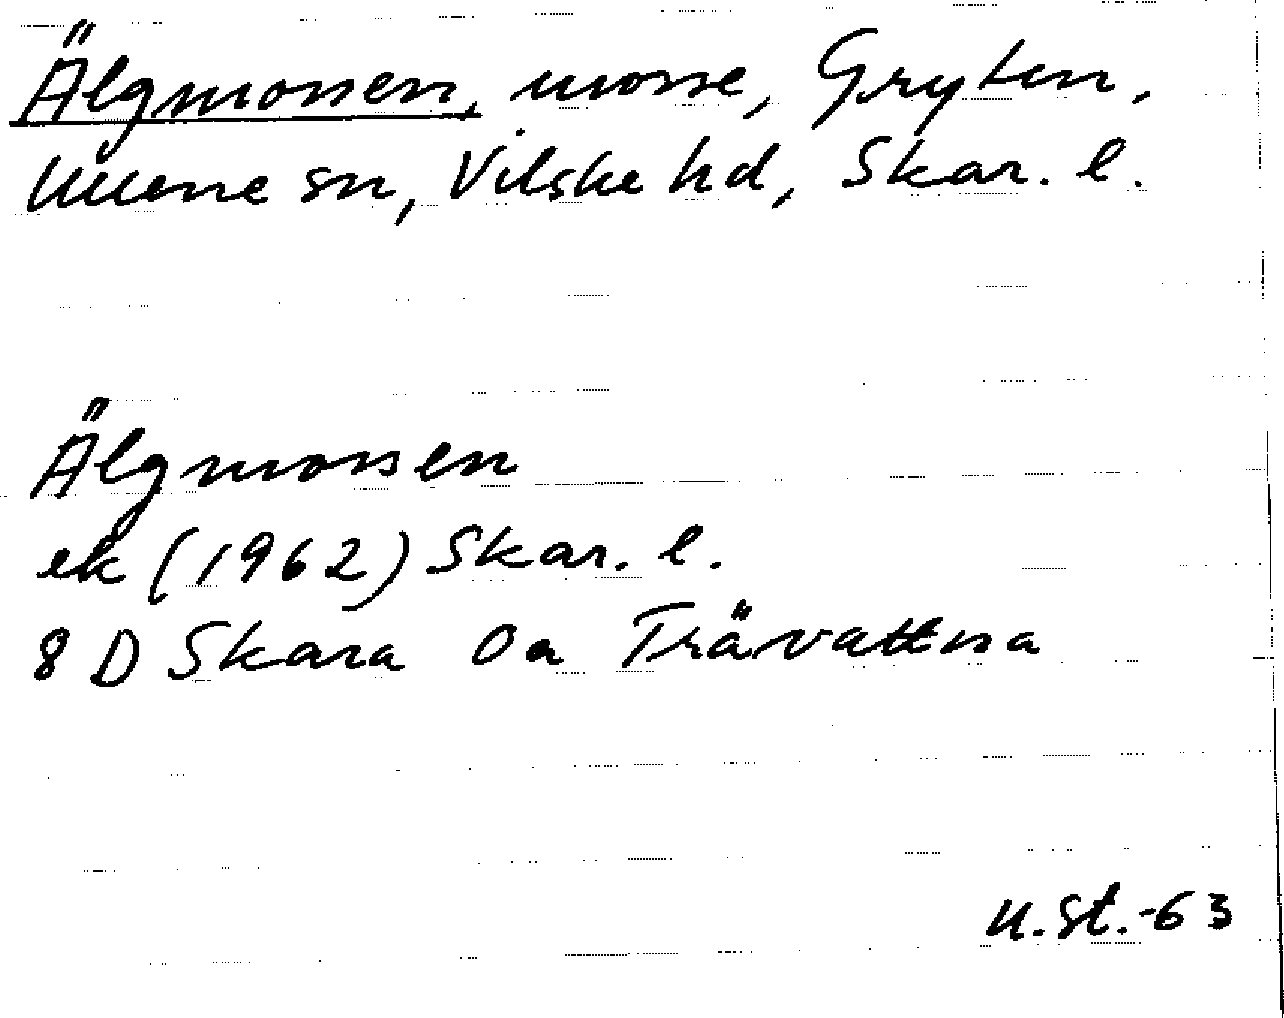 Älgmossen, mosse, Gryten,
Ullene sn, Vilske hd, Skar. l.
Älgmossen
ek (1962) Skar. l.
8 D Skara 0a Trävattna
U.St.-63